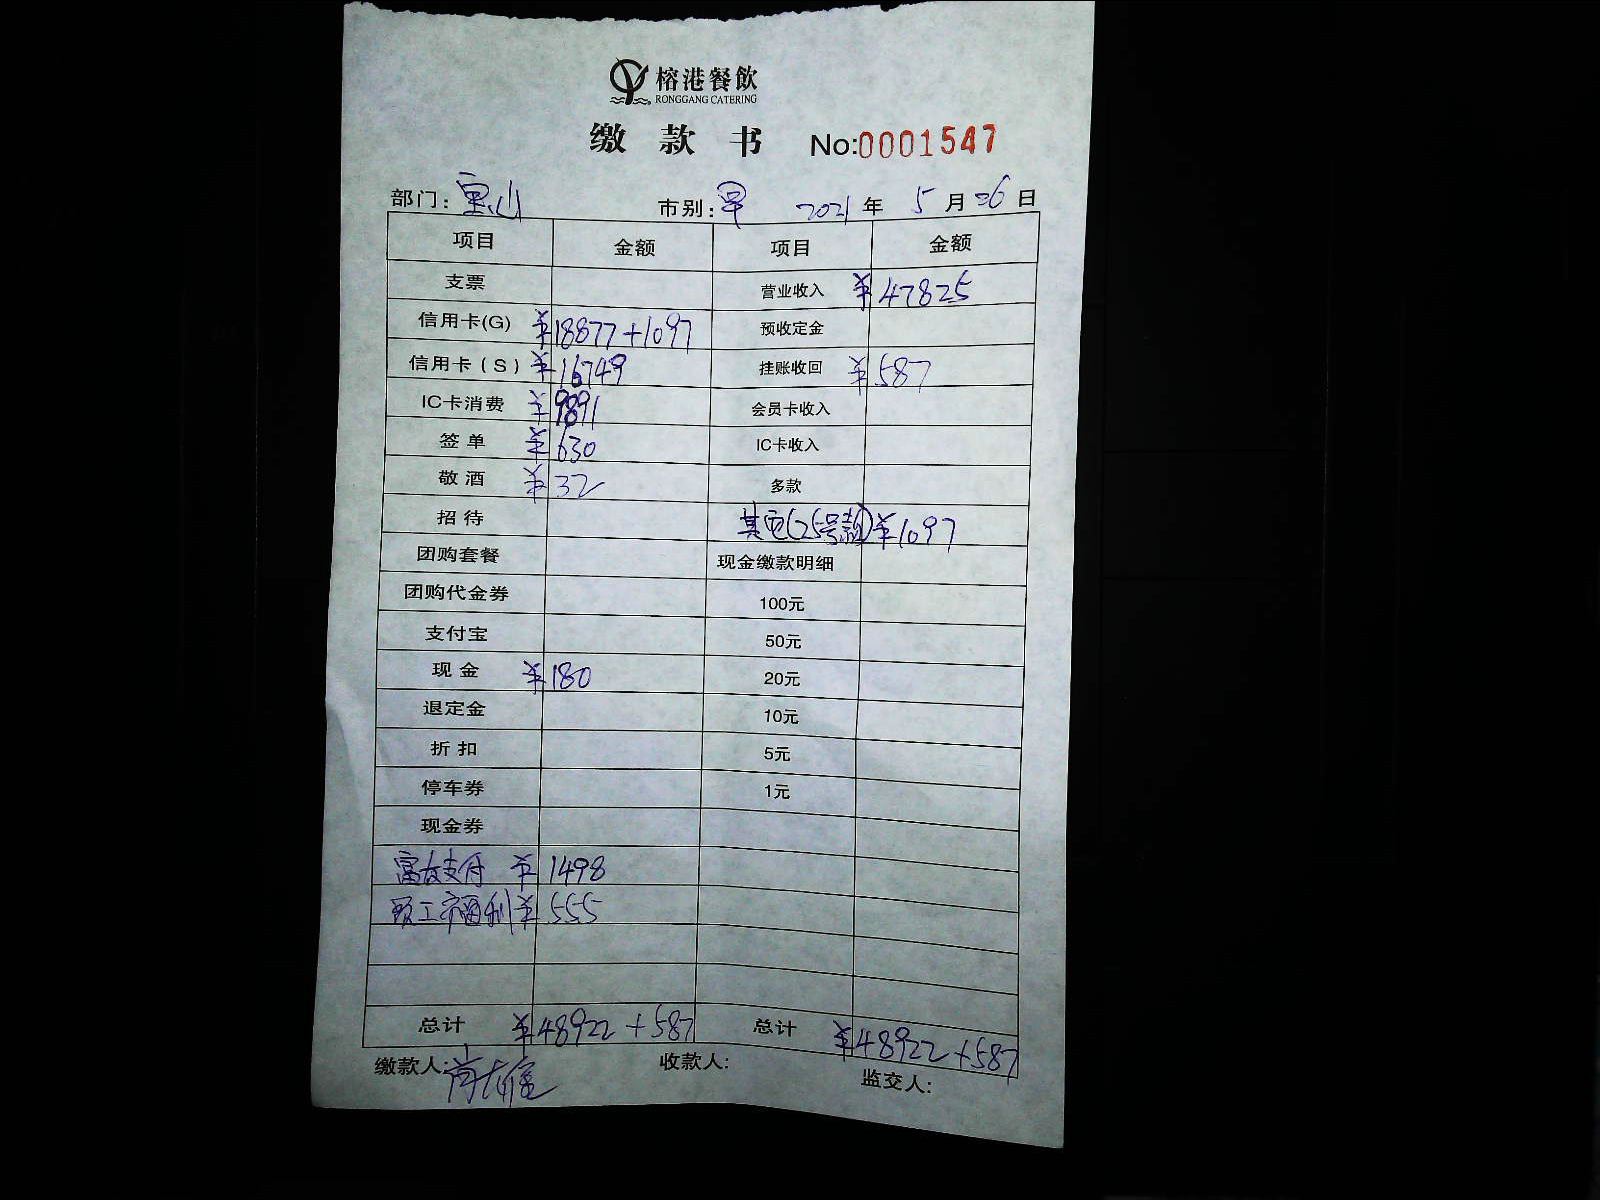 榕港餐飲
RONGGANG CATERING
缴 款 书 No:0001547
部门: 宝山 市别: 早 2021 年 5 月 26 日
项目 金额 项目 金额
支票 营业收入 ¥47825
信用卡(G) ¥18877+1097 预收定金
信用卡(S) ¥16749 挂账收回 ¥587
IC卡消费 ¥9891 会员卡收入
签 单 ¥630 IC卡收入
敬 酒 ¥32 多款
招 待 其它(25号款)¥1097
团购套餐 现金缴款明细
团购代金券 100元
支付宝 50元
现 金 ¥180 20元
退定金 10元
折 扣 5元
停车券 1元
现金券
富友支付 ¥1498
福利 ¥555
总计 ¥48922+587 总计 ¥48922+587
缴款人: 收款人: 监交人: